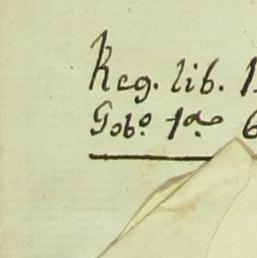 Reg. lib. 1
Gob.º 1ª 6